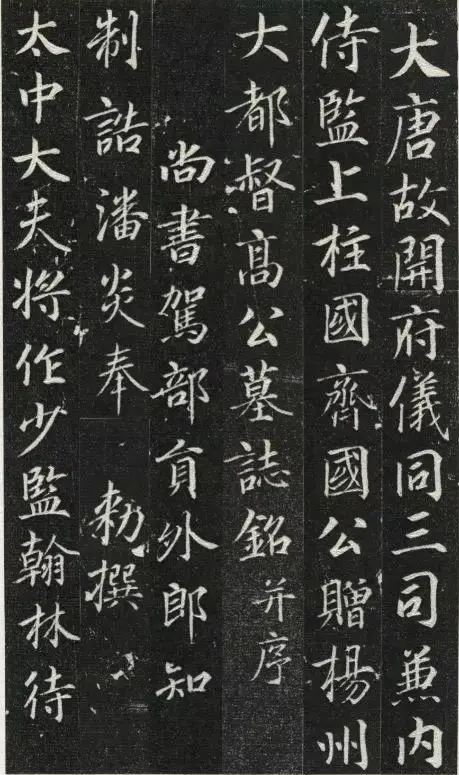 大唐故開府儀同三司兼内
侍監上柱國齊國公贈楊州
大都督高公墓誌銘并序
尚書駕部員外郎知
制誥潘炎奉敕撰
太中大夫將作少監翰林待